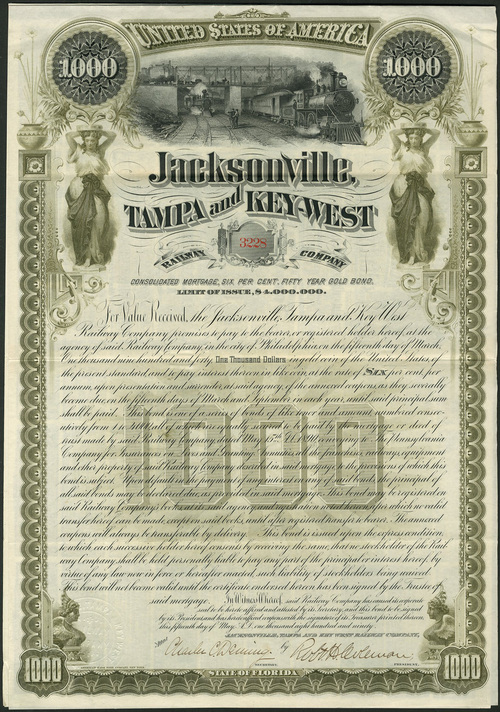 UNITED STATES OF AMERICA
1000 1000
Jacksonville,
TAMPA and KEY-WEST
3228
RAILWAY COMPANY
CONSOLIDATED MORTGAGE, SIX PER CENT, FIFTY YEAR GOLD BOND.
LIMIT OF ISSUE, $4,000,000.
For Value Received, the Jacksonville, Tampa and Key West
Railway Company promises to pay to the bearer, or registered holder hereof, at the
agency of said Railway Company, in the city of Philadelphia, on the fifteenth day of March,
One thousand nine hundred and forty One Thousand Dollars in gold coin of the United States, of
the present standard, and to pay interest thereon in like coin, at the rate of SIX per cent. per
annum, upon presentation and surrender, at said agency, of the annexed coupons, as they severally
become due, on the fifteenth days of March and September in each year, until said principal sum
shall be paid. This bond is one of a series of bonds of like tenor and amount, numbered consec-
utively from 1 to
trust made by said Railway Company, dated May 15th A.D. 1890, conveying to The Pennsylvania
Company for Insurances on Lives and Granting Annuities, Trustee, the franchises, railways, equipment
and other property of said Railway Company described in said mortgage, to the provisions of which this
bond is subject. Upon default in the payment of any interest on any of said bonds the principal of
all said bonds may be declared due, as provided in said mortgage. This bond may be registered on
said Railway Company's books at its said agency and registration noted hereon, after which no valid
transfer hereof can be made, except on said books, until after registered transfer to bearer. The annexed
coupons will always be transferable by delivery. This bond is issued upon the express condition,
to which each successive holder hereof consents by receiving the same, that no stockholder of the Rail-
way Company shall be held personally liable to pay any part of the principal or interest hereof, by
virtue of any law now in force or hereafter enacted, such liability of stockholders being waived.
This bond will not become valid until the certificate endorsed hereon has been signed by the Trustee of
said mortgage. In Witness Whereof, said Railway Company has caused its corporate
seal to be hereto affixed and attested by its Secretary, and this bond to be signed
by its President and has hereto affixed coupons with the signature of its treasurer printed thereon,
this fifteenth day of May A.D. one thousand eight hundred and ninety.
JACKSONVILLE, TAMPA AND KEY WEST RAILWAY COMPANY,
by
SECRETARY. PRESIDENT.
1000 STATE OF FLORIDA 1000